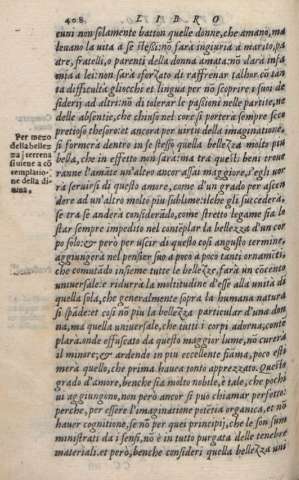 408. LIBRO
euni non solamente baston quelle donne, che amano, ma
leuano la uita a se stessi: nõ farà ingiuria à marito, pa
dre, fratelli, o parenti della donna amata: nõ darà infa
mia a lei: non sarà sforzato di raffrenar talhor cõ tan
ta difficultà gliocchi et lingua per nõ scoprire i suoi de
siderij ad altri: nõ di tolerar le passioni nelle partite, ne
delle absentie, che chiuso nel core si porterà sempre seco
pretioso thesoro: et ancora per uirtù della imaginatione,
si formerà dentro in se stesso quella bellezza molto più
bella, che in effetto non sarà: ma tra questi beni troue
ranne l'amãte un'altro ancor assai maggiore, s'egli uor
rà seruirsi di questo amore, come d'un grado per ascen
dere ad un'altro molto piu sublime: ilche gli succederà,
se tra se anderà considerãdo, come stretto legame sia lo
star sempre impedito nel contẽplar la bellezza d'un cor
po solo: & però per uscir di questo così angusto termine,
aggiungerà nel pensier suo a poco a poco tanti ornamẽti,
che comulãdo insieme tutte le bellezze, farà un cõcento
uniuersale: e ridurrà la moltitudine d'esse alla unità di
quella sola, che generalmente sopra la humana natura
si spãde: et così nõ più la bellezza particular d'una don
na, ma quella uniuersale, che tutti i corpi adorna, conte
plarà. onde offuscato da questo maggior lume, nõ curerà
il minore; & ardendo in piu eccellente fiamma, poco esti
merà quello, che prima hauea tanto apprezzato. Questo
grado d'amore, benche sia molto nobile, e tale, che pochi
ui aggiungono, non però ancor si può chiamar perfetto:
perche, per essere l'imaginatione potẽtia organica, et nõ
hauer cognitione, se nõ per quei principij, che le son sum
ministrati da i sensi, nõ è in tutto purgata delle tenebre
materiali. et però, benche consideri quella bellezza uni
Per mezo
della bellez
za terrena
si uiene a cõ
templatio-
ne della di-
uina.